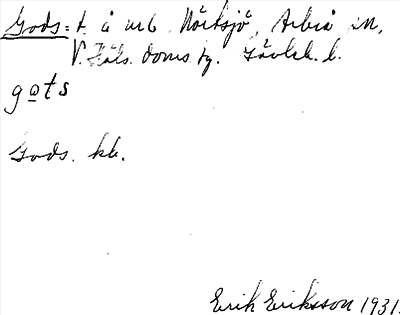 Gods: t. å urb. Nörtsjö, Arbrå sn,
V. Häls. doms. tg. Gävleb. l.
gọts
Gods. kb.
Erik Eriksson 1931.